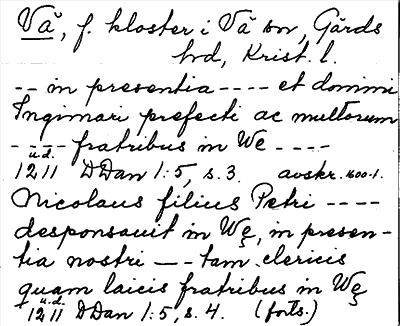 Vä, f. kloster i Vä sn, Gärds
hd, Krist. l.
-- in presentia ---- et domini
Ingimari prefecti ac multorum
---- fratribus in We ----
u.d.
1211 DDan 1:5, s. 3. avskr. 1600-t.
Nicolaus filius Petri ----
desponsauit in Wę, in presen-
tia nostri --- tam clericis
quam laicis fratribus in Wę
u.d.
1211 DDan 1:5, s. 4. (forts.)